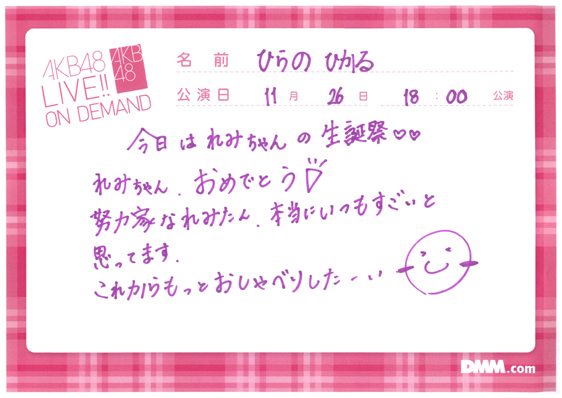 AKB48
LIVE!!
ON DEMAND
AKB
48
名前 ひらの ひかる
公演日 11月 26日 18:00 公演
今日は れみちゃんの 生誕祭♡♡
れみちゃん、おめでとう
努力家なれみたん、本当にいつもすごいと
思ってます。
これからもっとおしゃべりしたーい
DMM.com